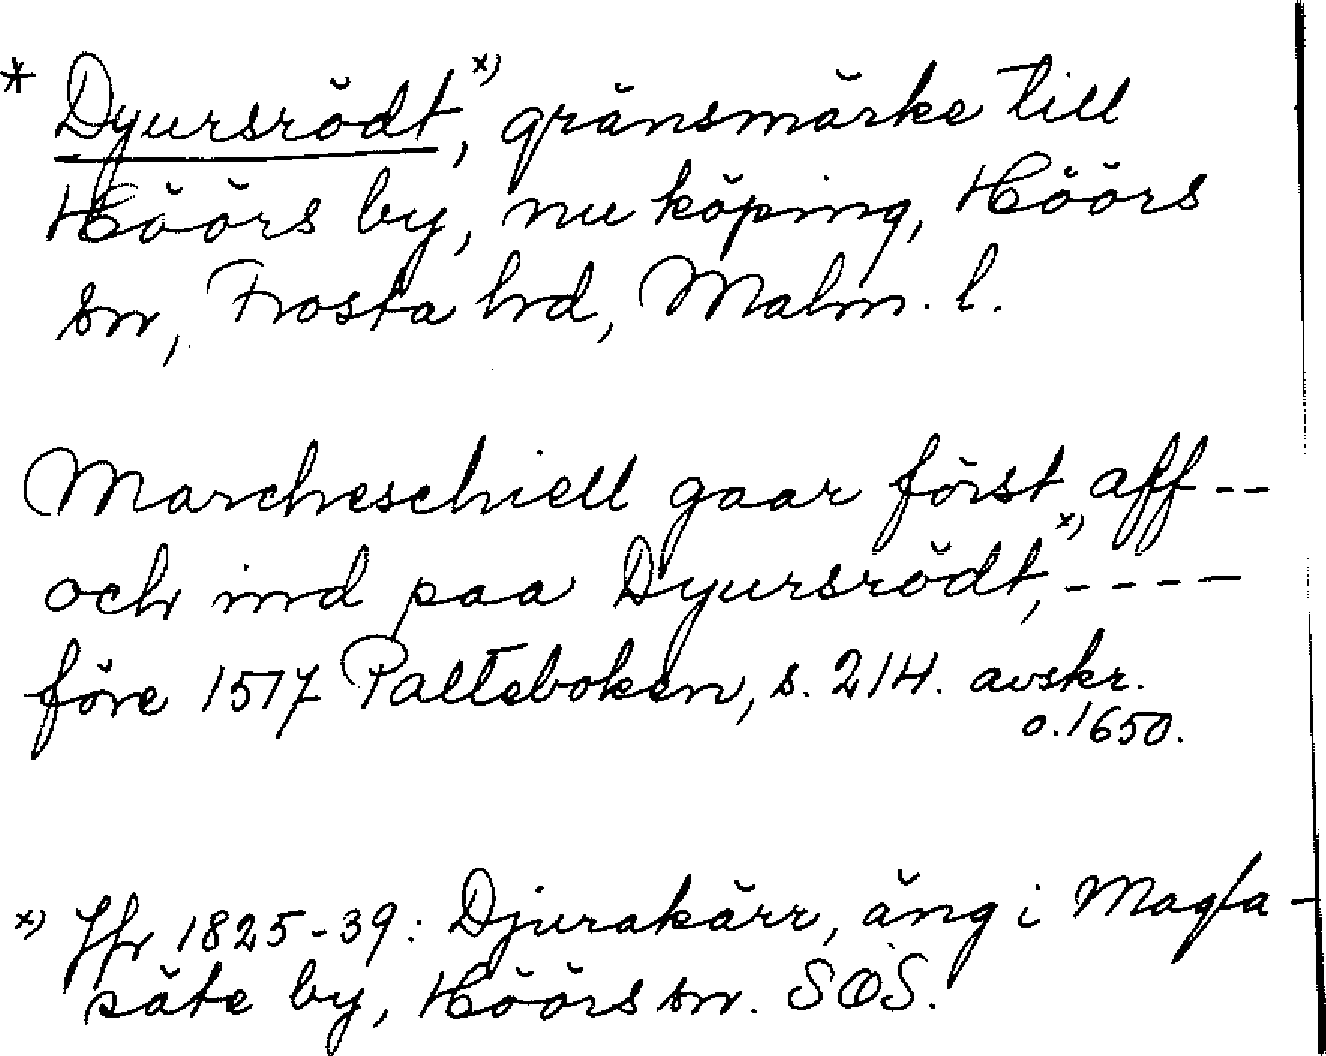 * Dyursrödt,ˣ⁾ gränsmärke till
Höörs by, nu köping, Höörs
sn, Frosta hd, Malm. l.
Marcheschiell gaar först aff --
och ind paa Dyursrödt,ˣ⁾ ----
före 1517 Palteboken, s. 214. avskr.
o. 1650.
ˣ⁾ Jfr 1825-39: Djurakärr, äng i Magla-
säte by, Höörs sn. SOS.